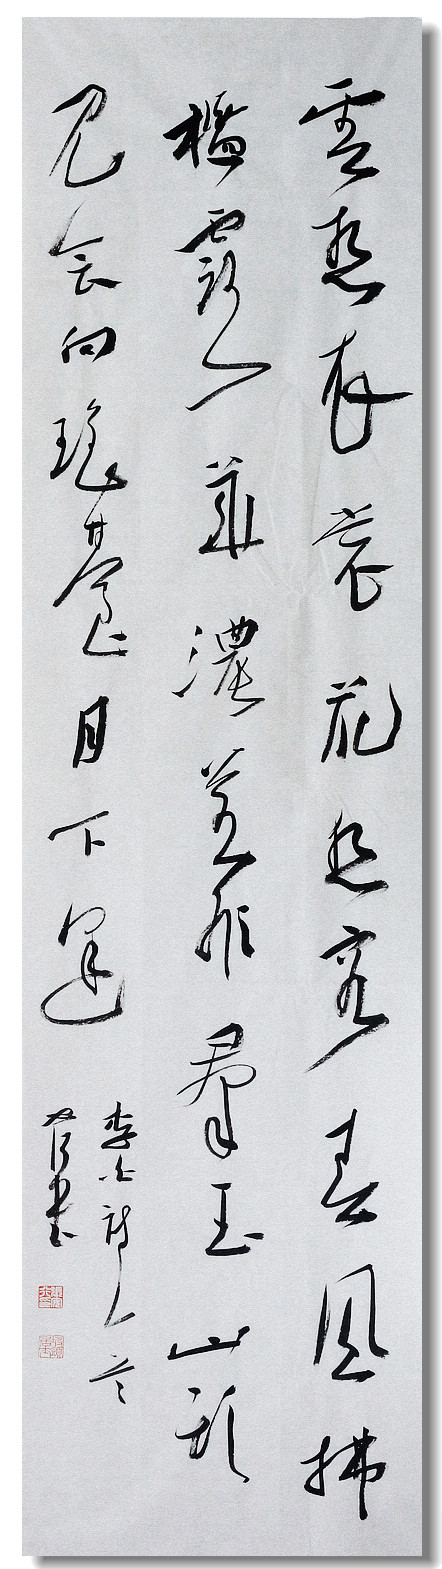 雲想衣裳花想容春風拂
檻露華濃若非羣玉山頭
見會向瑤臺月下逢
李白詩一首
書